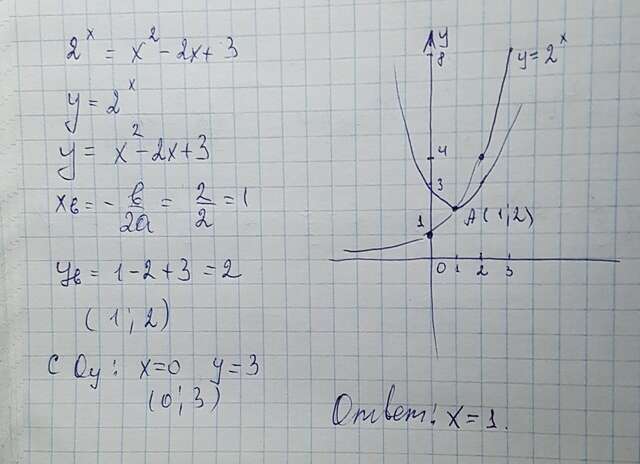 2^x = x^2 - 2x + 3
y = 2^x
y = x^2 - 2x + 3
xв = - в/2a = 2/2 = 1
yв = 1 - 2 + 3 = 2
(1; 2)
С Oy: x=0 y=3
(0; 3)
y
8
y = 2^x
4
3
A(1;2)
1
0 1 2 3
Ответ: x = 1.